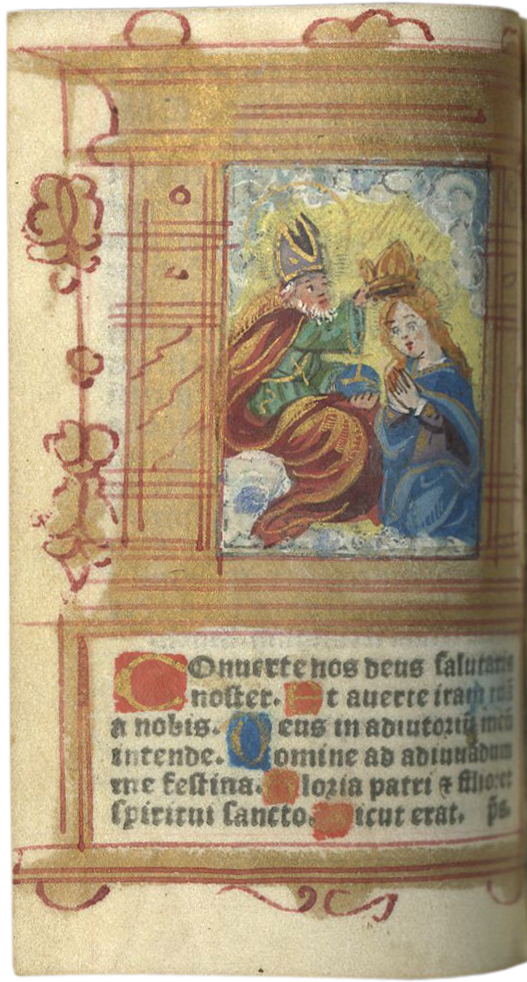 COnuerte nos deus salutaris
noster. Et auerte iram tuā
a nobis. Deus in adiutoriū meū
intende. Domine ad adiuuādum
me festina. Gloria patri ⁊ filio: et
spiritui sancto. Sicut erat. p̄s.